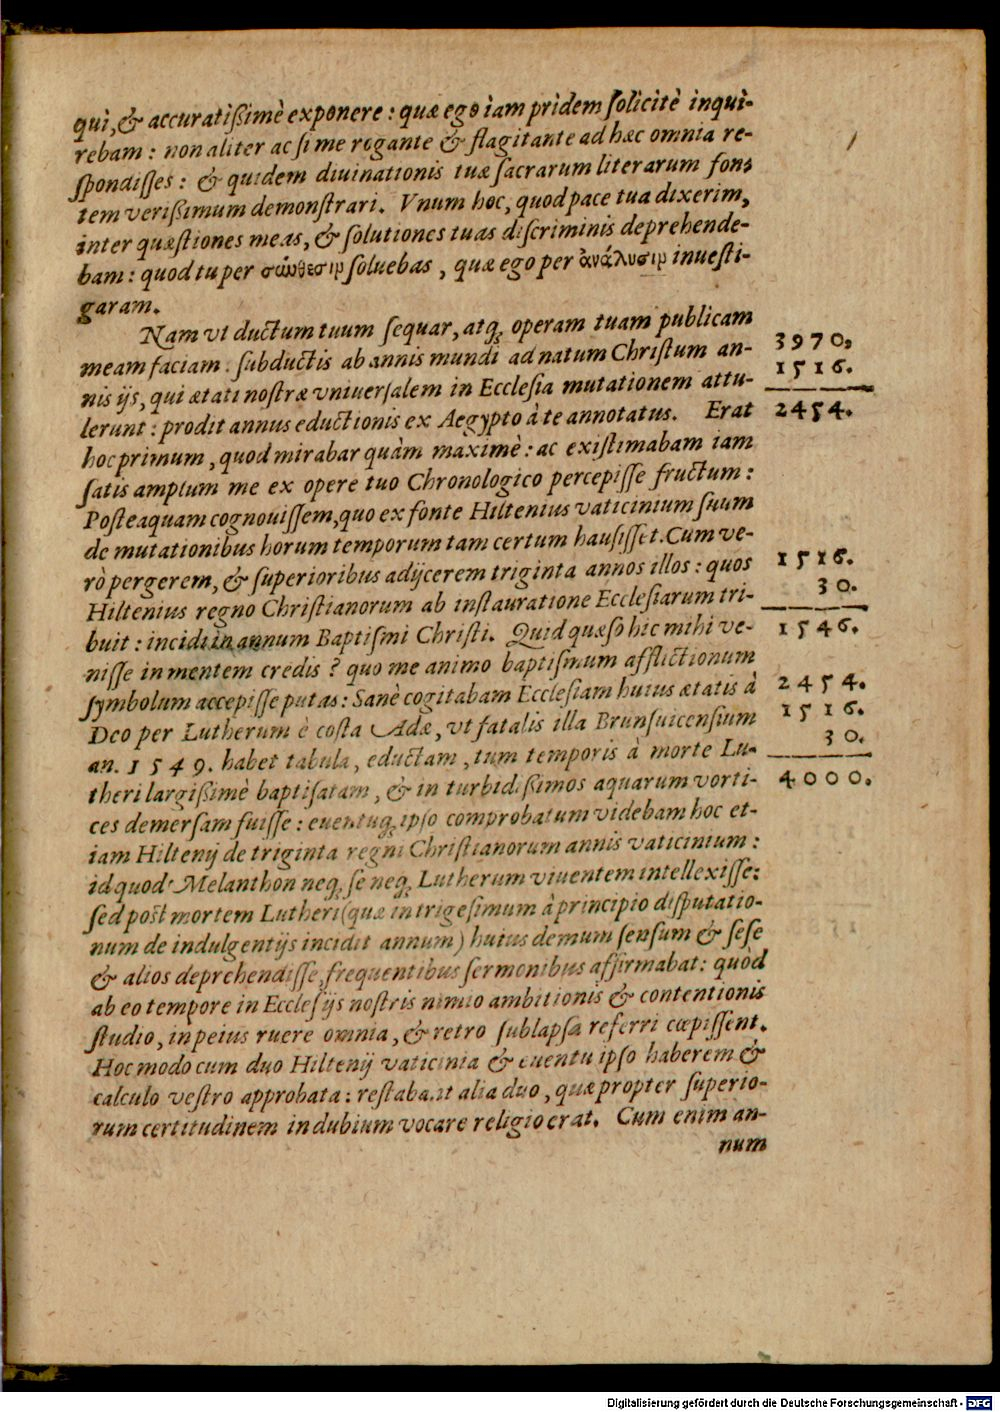 qui, & accuratißimè exponere : quæ ego iam pridem ſolicitè inqui-
rebam : non aliter ac ſi me rogante & flagitante ad hæc omnia re-
ſpondiſſes : & quidem diuinationis tuæ ſacrarum literarum fon-
tem verißimum demonſtrari. Vnum hoc, quod pace tua dixerim,
inter quæſtiones meas, & ſolutiones tuas diſcriminis deprehende-
bam : quod tu per σύνθεσιν ſoluebas, quæ ego per ἀνάλυσιν inueſti-
garam.
Nam vt ductum tuum ſequar, atq; operam tuam publicam
meam faciam : ſubductis ab annis mundi ad natum Chriſtum an-
3970,
nis ijs, qui ætati noſtræ vniuerſalem in Eccleſia mutationem attu-
1516.
lerunt : prodit annus eductionis ex Aegypto à te annotatus. Erat
2454.
hoc primum, quod mirabar quàm maximè : ac exiſtimabam iam
ſatis amplum me ex opere tuo Chronologico percepiſſe fructum :
Poſteaquam cognouiſſem, quo ex fonte Hiltenius vaticinium ſuum
de mutationibus horum temporum tam certum hauſiſſet. Cum ve-
rò pergerem, & ſuperioribus adijcerem triginta annos illos : quos
1516.
Hiltenius regno Chriſtianorum ab inſtauratione Eccleſiarum tri-
30.
buit : incidi in annum Baptiſmi Chriſti. Quid quæſo hic mihi ve-
1546.
niſſe in mentem credis ? quo me animo baptiſmum afflictionum
ſymbolum accepiſſe putas : Sanè cogitabam Eccleſiam huius ætatis à
2454.
Deo per Lutherum è coſta Adæ, vt fatalis illa Brunſuicenſium
1516.
an. 1549. habet tabula, eductam, tum temporis à morte Lu-
30.
theri largißimè baptiſatam, & in turbidißimos aquarum vorti-
4000.
ces demerſam fuiſſe : euentuq; ipſo comprobatum videbam hoc et-
iam Hiltenij de triginta regni Chriſtianorum annis vaticinium :
id quod Melanthon neq; ſe neq; Lutherum viuentem intellexiſſe :
ſed poſt mortem Lutheri (quæ in trigeſimum à principio diſputatio-
num de indulgentijs incidit annum) huius demum ſenſum & ſeſe
& alios deprehendiſſe, frequentibus ſermonibus affirmabat : quòd
ab eo tempore in Eccleſijs noſtris nimio ambitionis & contentionis
ſtudio, in peius ruere omnia, & retro ſublapſa referri cœpiſſent.
Hoc modo cum duo Hiltenij vaticinia & euentu ipſo haberem &
calculo veſtro approbata : reſtabant alia duo, quæ propter ſuperio-
rum certitudinem in dubium vocare religio erat. Cum enim an-
num
Digitalisierung gefördert durch die Deutsche Forschungsgemeinschaft - DFG